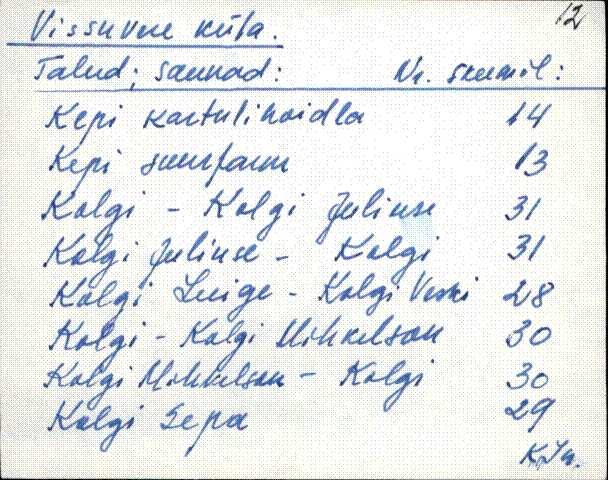 12
Vissuvere küla.
Talud; saunad: Nr. skeemil:
Kepi kartulihoidla 14
Kepi suurfarm 13
Kolgi - Kolgi Juliuse 31
Kolgi Juliuse - Kolgi 31
Kolgi Luige - Kolgi Veski 28
Kolgi - Kolgi Mihkelson 30
Kolgi Mihkelson - Kolgi 30
Kolgi Sepa 29